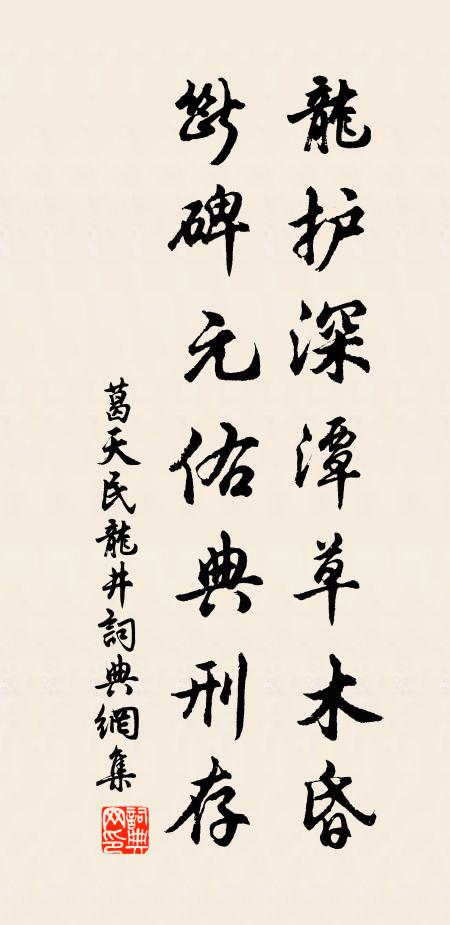 龍护深潭草木昏
斷碑元佑典刑存
葛天民龍井詞典網集
詞典网印